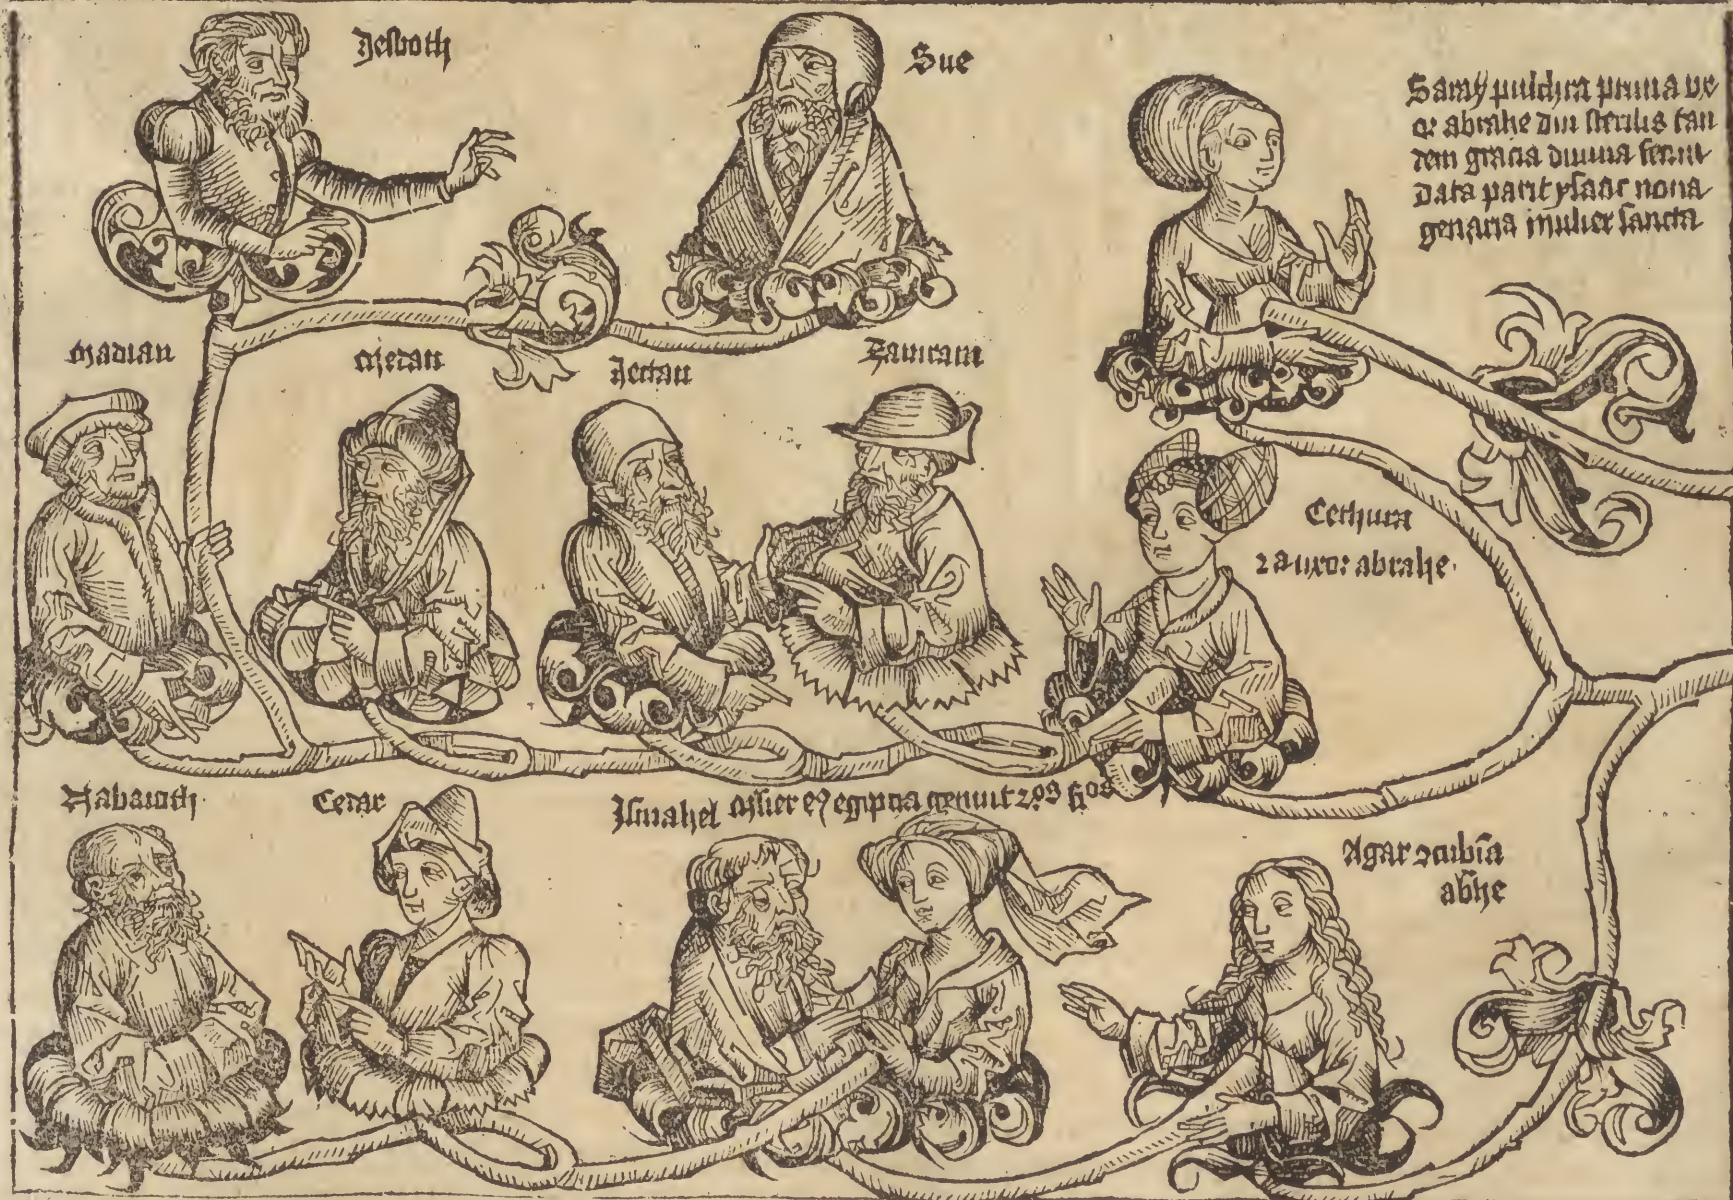 Jesboth
Sue
Saray pulchra prima vx
or abrahe diu sterilis tan
dem gracia diuina fecun
data parit ysaac nona
genaria mulier sancta
Madian
Medan
Jectan
Zamram
Cethura
2a uxor abrahe
Nabaioth
Cedar
Ismahel Mulier eiꝰ egiptia genuit 2os fios
Agar ꝯcubīa
abhe